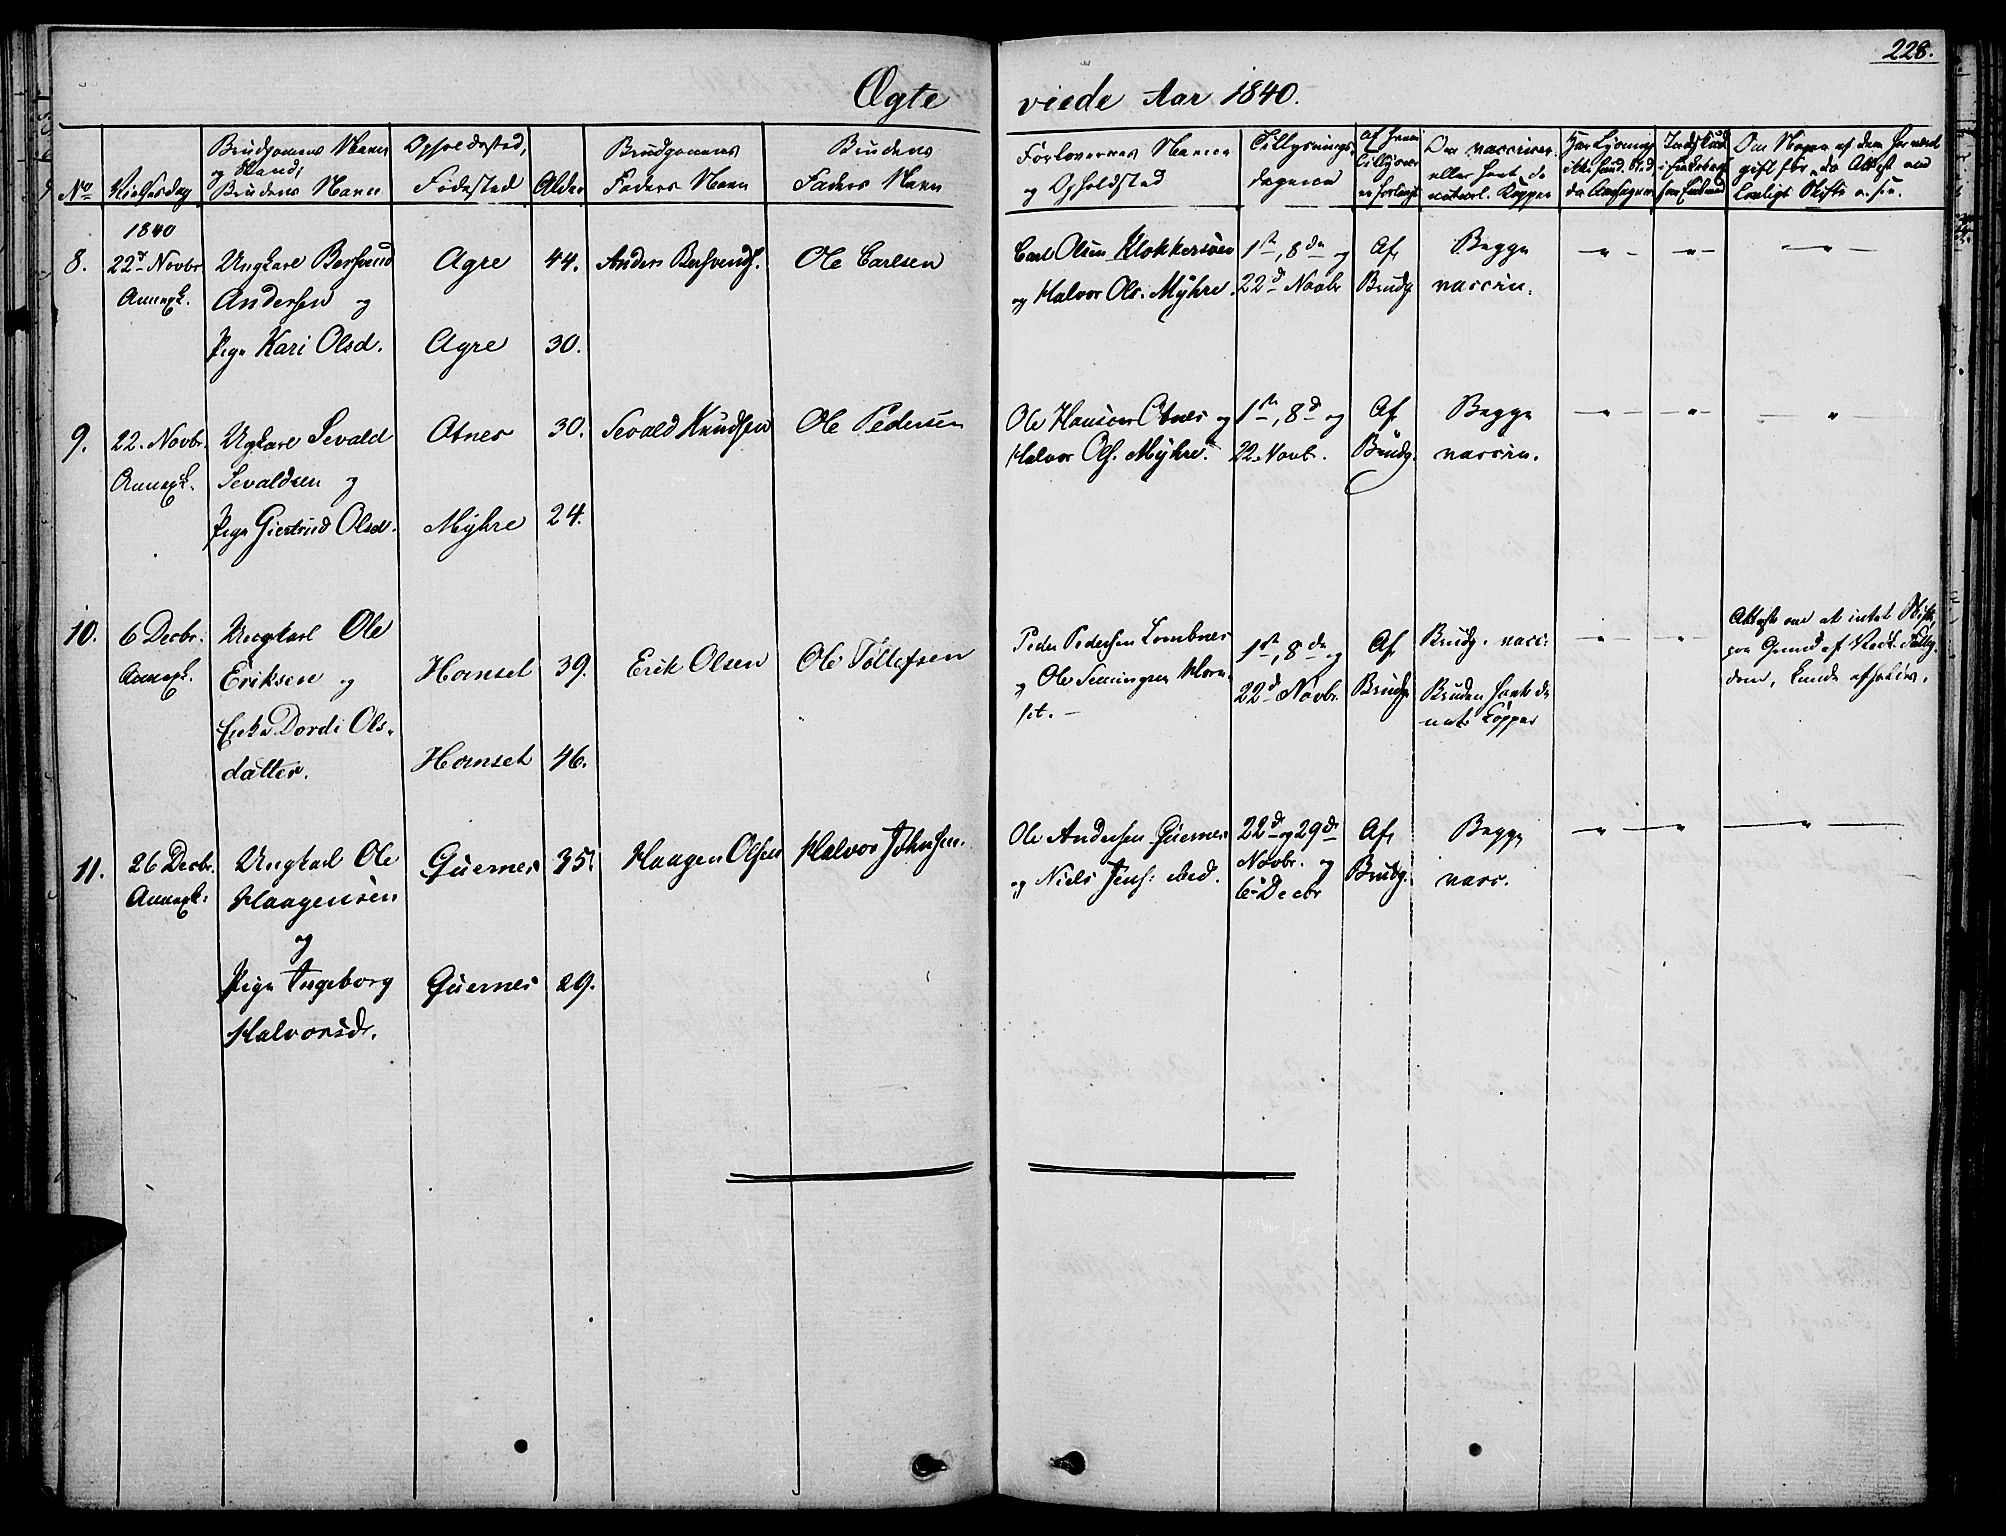 228.
Ægte viede Aar 1840.
No
Vielsesdag
Brudgomens Navn
og Stand,
Brudens Navn
Opholdssted,
Fødested
Alder
Brudgomens
Faders Navn
Brudens
Faders Navn
Forlovernes Navne
og Opholdsted
Tillysnings-
dagene
Af hvem
Lillysn
er forlangt
Om vaccineret
eller havt de
naturl. Kopper
Om Nogen af dem har været
gift før, da Attest om
lovligt Skifte
1840
8.
22d Novbr
Annexk.
Ungkarl Bersvend
Andersen og
Pige Kari Olsd.
Agre
Agre
44.
30.
Anders Bersvends.
Ole Carlsen
Carl Olsen Klokkersøen
og Halvor Ols. Mÿhre.
1ste, 8de og
22d Novbr
Af
Brudg.
Begge
vaccin.
9.
22. Novbr
Annexk.
Ugkarl Sevald
Sevaldsen og
Pige Giertrud Olsd.
Otnes
Mÿhre
30.
24.
Sevald Knudsen
Ole Pedersen
Ole Hansen Otnes og
Halvor Ols. Mÿhre.
1ste, 8d og
22. Novb.
Af
Brudg.
Begge
vaccin.
10.
6 Decbr.
Annexk.
Ungkarl Ole
Eriksen og
Enke Dordi Ols-
datter.
Hornset
Hornset
39.
46.
Erik Olsen
Ole Tollefsen
Peder Pedersen Lombnes
og Ole Simingsen Horn-
set.
1ste, 8de og
22d Novbr.
Af
Brudg
Brudg. vacc:
Bruden havt de
nat. Kopper
Attest om at intet Skifte,
paa Grund af Vedk. Fattig-
dom, kunde afholdes.
11.
26 Decbr.
Annexk.
Ungkarl Ole
Haagensen
og
Pige Ingeborg
Halvorsd.
Guernes
Guernes
35.
29.
Haagen Olsen
Halvor Johnsen.
Ole Andersen Guernes
og Niels Jens: ibid.
22d og 29d
Novbr. og
6 Decbr
Af
Brudg.
Begge
vacc.